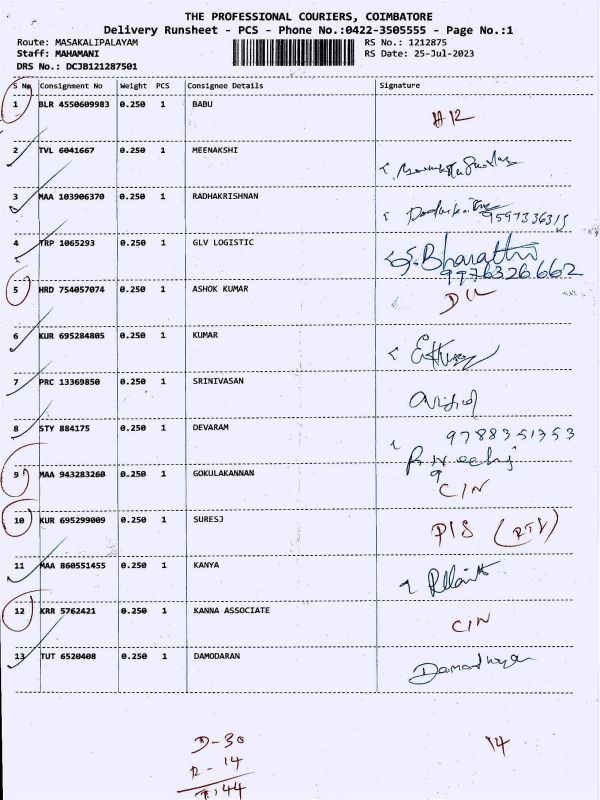 THE PROFESSIONAL COURIERS, COIMBATORE
Delivery Runsheet - PCS - Phone No.:0422-3505555 - Page No.:1
Route: MASAKALIPALAYAM RS No.: 1212875
Staff: MAHAMANI RS Date: 25-Jul-2023
DRS No.: DCJB121287501
S No Consignment No Weight PCS Consignee Details Signature
1 BLR 4550609983 0.250 1 BABU
2 TVL 6041667 0.250 1 MEENAKSHI
3 MAA 103906370 0.250 1 RADHAKRISHNAN
4 TRP 1065293 0.250 1 GLV LOGISTIC Bharathi
9976326662
5 HRD 754057074 0.250 1 ASHOK KUMAR
6 KUR 695284805 0.250 1 KUMAR
7 PRC 13369850 0.250 1 SRINIVASAN
8 STY 884175 0.250 1 DEVARAM 9788351353
9 MAA 943283260 0.250 1 GOKULAKANNAN
C/N
10 KUR 695299009 0.250 1 SURESJ
11 MAA 860551455 0.250 1 KANYA
12 KRR 5762421 0.250 1 KANNA ASSOCIATE
C/N
13 TUT 6520408 0.250 1 DAMODARAN
D-30 14
R-14